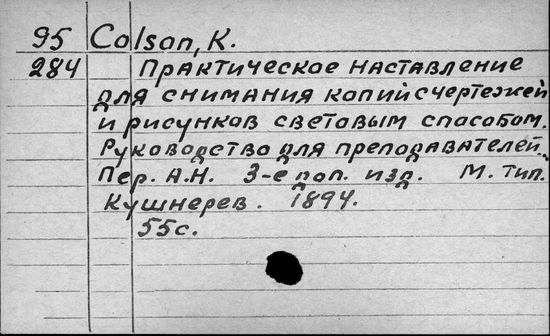 95 Colson, K.
284 Практическое наставление
для снимания копий с чертежей
и рисунков световым способом.
Руководство для преподавателей.
Пер. А.Н. 3-е доп. изд. М. Тип.
Кушнерев. 1894.
55 с.